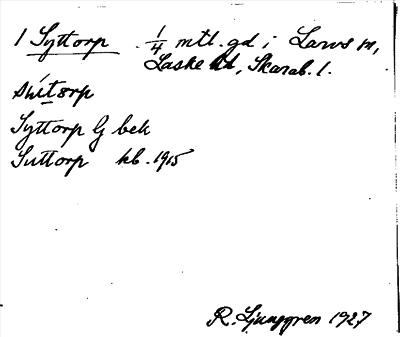 1 Syttorp 1/4 mtl. gd i Larvs sn,
Laske hd, Skarab. l.
Syttorp Gj bek
Suttorp kb. 1915
R. Ljunggren 1927